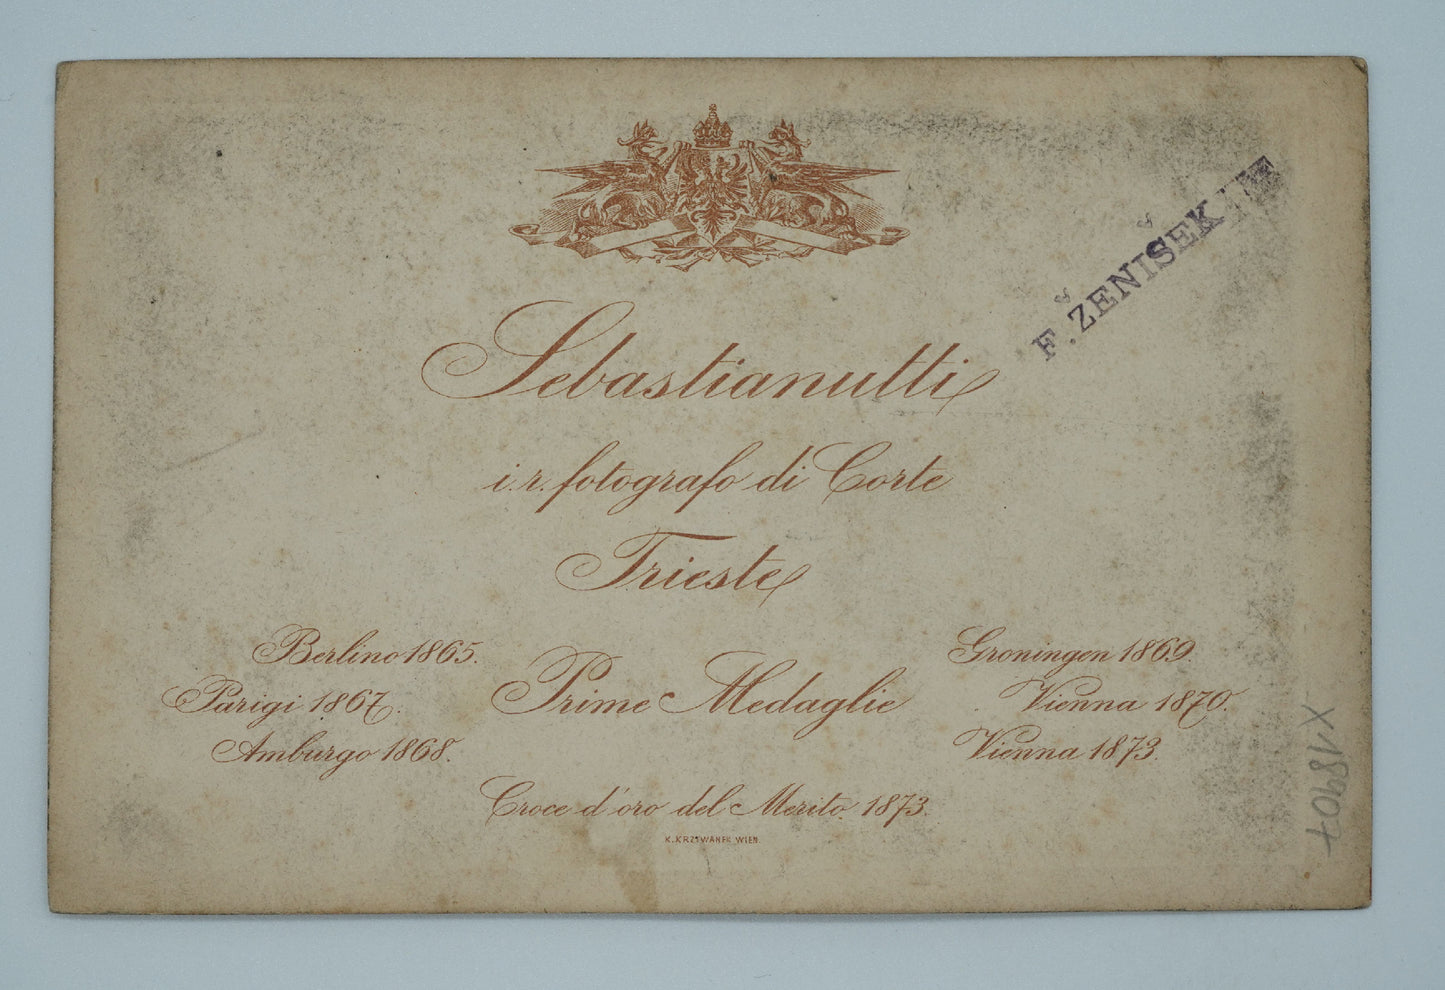 F. ŽENIŠEK
Sebastianutti
i. r. fotografo di Corte
Trieste
Berlino 1865.
Parigi 1867.
Amburgo 1868.
Prime Medaglie
Groningen 1869.
Vienna 1870.
Vienna 1873.
Croce d'oro del Merito. 1873.
K. KRZIWANEK WIEN.
X18907